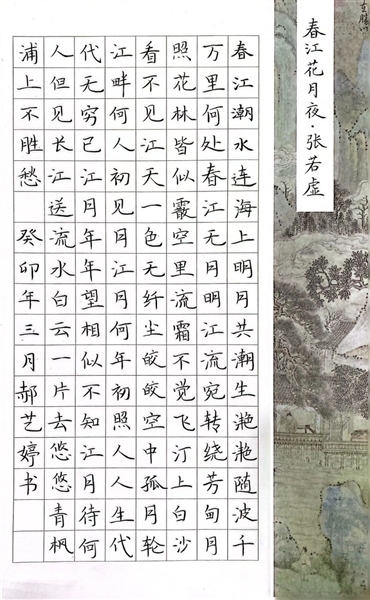 春江花月夜·张若虚
春江潮水连海上明月共潮生滟滟随波千
万里何处春江无月明江流宛转绕芳甸月
照花林皆似霰空里流霜不觉飞汀上白沙
看不见江天一色无纤尘皎皎空中孤月轮
江畔何人初见月江月何年初照人人生代
代无穷已江月年年望相似不知江月待何
人但见长江送流水白云一片去悠悠青枫
浦上不胜愁 癸卯年三月郝艺婷书